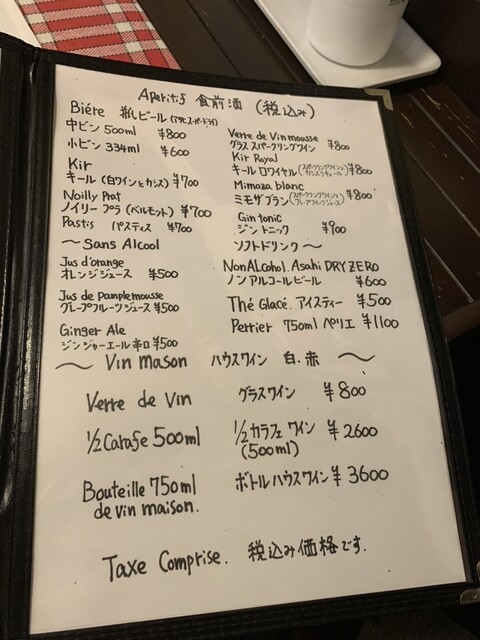 Aperitif 食前酒 (税込み)
Biére 瓶ビール (アサヒスーパードライ)
中ビン 500ml ¥800
小ビン 334ml ¥600
Kir
キール (白ワインとカシス) ¥700
Noilly Prat
ノイリープラ (ベルモット) ¥700
Pastis パスティス ¥700
Verre de Vin mousse
グラス スパークリングワイン ¥800
Kir Royal
キールロワイヤル (スパークリングワインとカシスリキュール) ¥800
Mimoza blanc
ミモザブラン (スパークリングワインとグレープフルーツジュース) ¥800
Gin tonic
ジントニック ¥900
～Sans Alcool ソフトドリンク～
Jus d'orange
オレンジジュース ¥500
Jus de Pamplemousse
グレープフルーツジュース ¥500
Ginger Ale
ジンジャーエール辛口 ¥500
NonALcohol. Asahi DRY ZERO
ノンアルコールビール ¥600
Thé Glacé. アイスティー ¥500
Perrier 750ml ペリエ ¥1100
～ Vin mason ハウスワイン 白.赤 ～
Verre de Vin グラスワイン ¥800
1/2 Carafe 500ml 1/2 カラフェ ワイン ¥2600
(500ml)
Bouteille 750ml ボトルハウスワイン ¥3600
de vin maison.
Taxe Comprise. 税込み価格です.